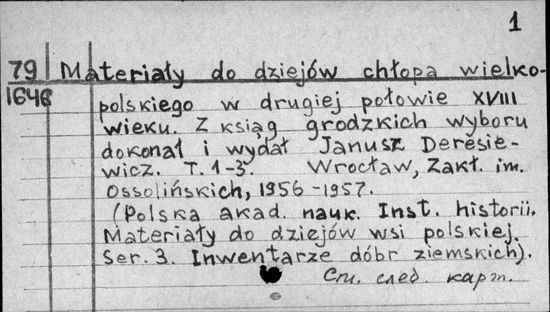 1
79 Materiały do dziejów chłopa wielko-
1646 polskiego w drugiej połowie XVIII
wieku. Z ksiąg grodzkich wyboru
dokonał i wydał Janusz Deresie-
wicz. T. 1-3. Wrocław, Zakł. im.
Ossolińskich, 1956-1957.
(Polska akad. nauk. Inst. historii.
Materiały do dziejów wsi polskiej.
Ser. 3. Inwentarze dóbr ziemskich).
См. след. карт.